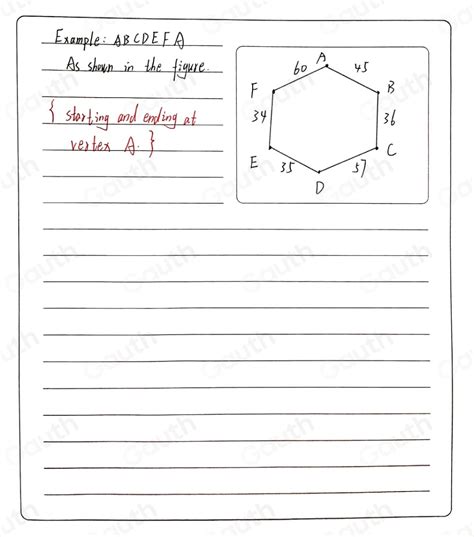 Example: ABCDEFA
As shown in the figure.
{ starting and ending at
vertex A. }
A
60
45
F
B
34
36
E
C
35
57
D
Gauth